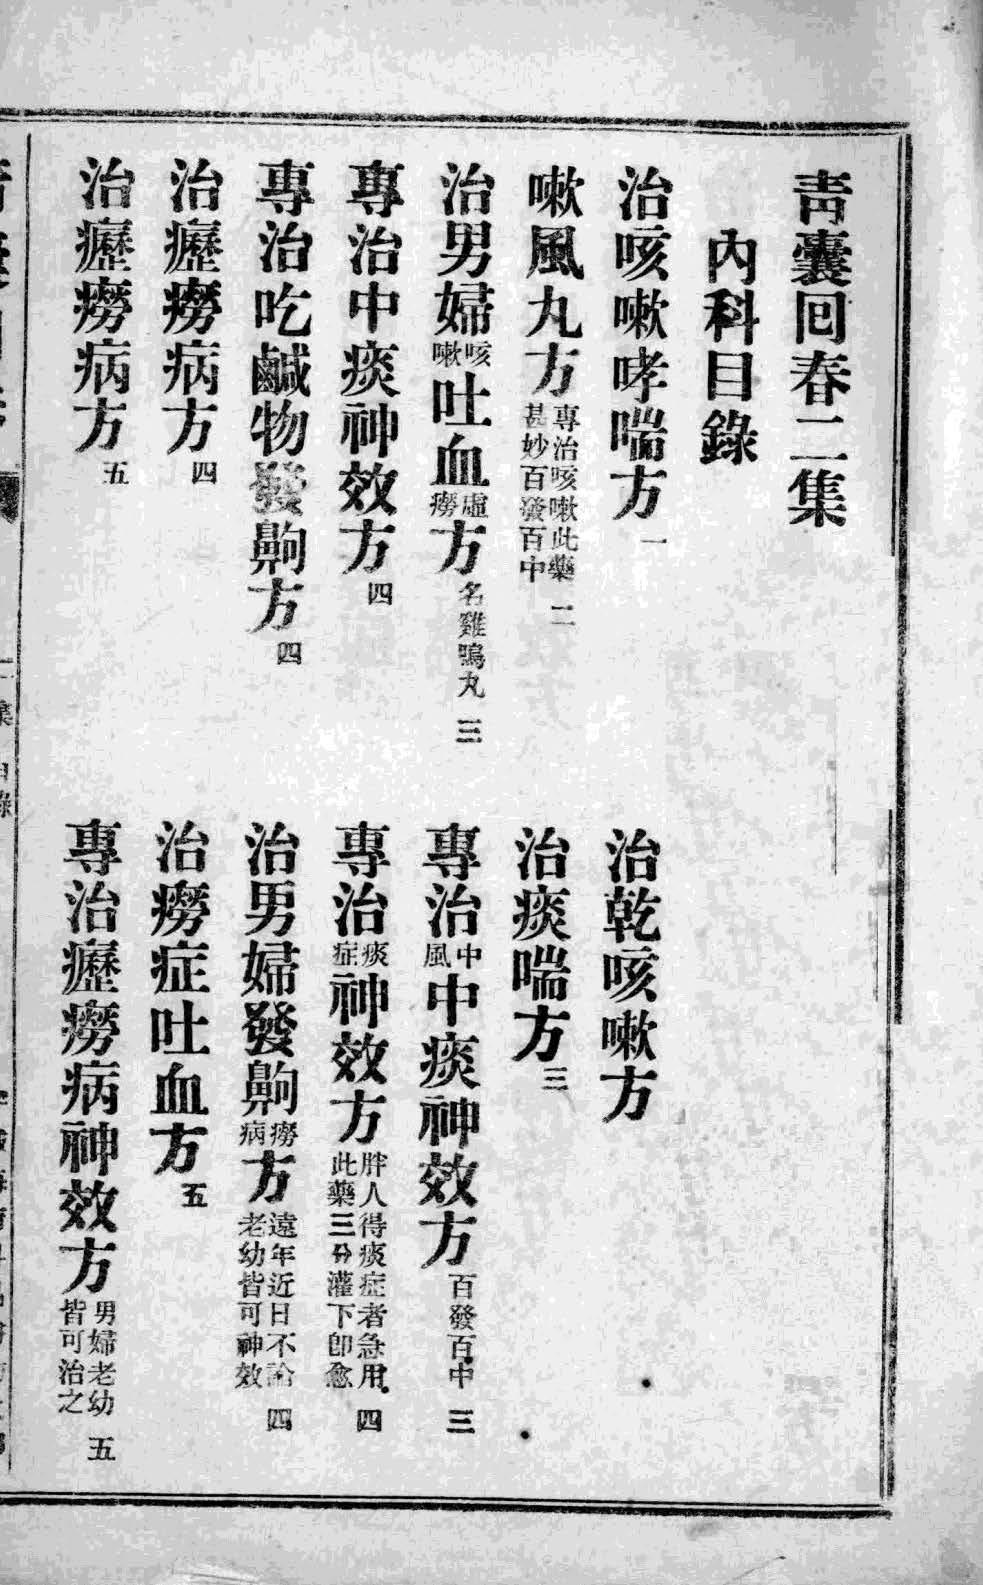 靑囊回春二集
內科目錄
治咳嗽哮喘方 一
治乾咳嗽方
嗽風丸方 專治咳嗽此藥甚妙百發百中 二
治痰喘方 三
治男婦咳嗽吐血虛癆方 名雞鳴丸 三
專治中風中痰神效方 百發百中 三
專治中痰神效方 四
專治痰症神效方 胖人得痰症者急用此藥三分灌下卽愈 四
專治吃鹹物發齁方 四
治男婦發齁癆病方 遠年近日不論老幼皆可神效 四
治癧癆病方 四
治癆症吐血方 五
治癧癆病方 五
專治癧癆病神效方 男婦老幼皆可治之 五